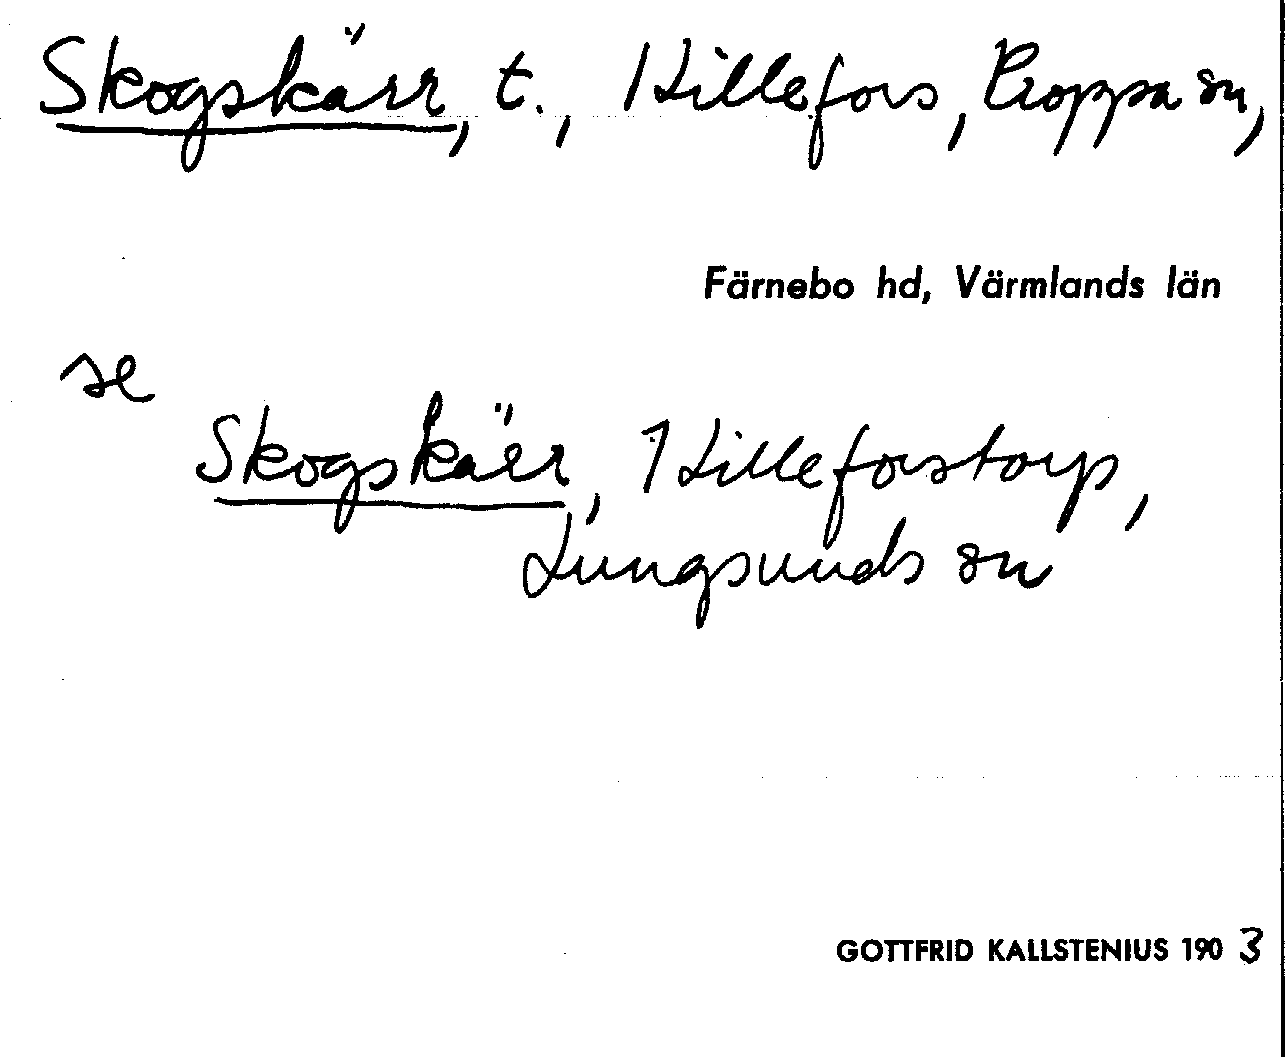 Skogskärr, t., Hillefors, Kroppa sn,
Färnebo hd, Värmlands län
se
Skogskärr, Hilleforstorp,
Lungsunds sn
GOTTFRID KALLSTENIUS 1903